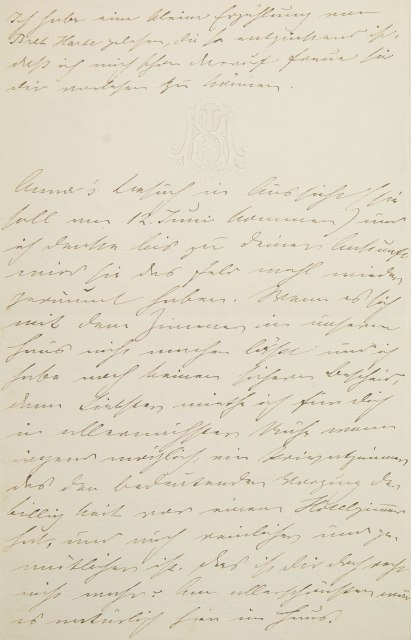 Ich habe eine kleine Erzählung von
Bret Harte gelesen, die so entzückend ist,
daß ich mich schon darauf freue sie
dir vorlesen zu können.
Anna's Besuch in Aussicht (sie
soll am 12. Juni kommen) und
ich denke bis zu deiner Ankunft
wird sie das Feld wohl wieder
geräumt haben. Wenn es sich
mit dem Zimmer in unserem
Haus nicht machen läßt und ich
habe noch keinen sicheren Bescheid,
dann Liebster miethe ich für dich
in allernächster Nähe wenn
irgend möglich, ein Privatzimmer
das den bedeutenden Vorzug der
Billigkeit vor einem Hôtelzimmer
hat, und auch reinlicher und ge-
müthlicher ist. das ist dir doch recht
nicht wahr? Am allerschönsten wäre
es natürlich hier im Haus.